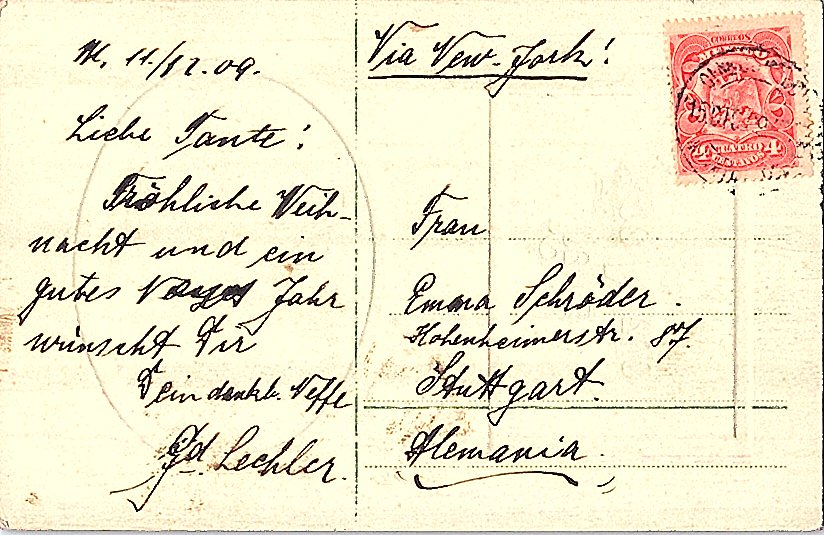 M. 11/12.09.
Liebe Tante!
Fröhliche Weih-
nacht und ein
gutes Jahr
wünscht Dir
Dein dankb. Neffe
Lechler.
Via New-York!
CORREOS
4 CUATRO 4
CENTAVOS
Frau
Emma Schröder.
Hohenheimerstr. 87.
Stuttgart.
Alemania.